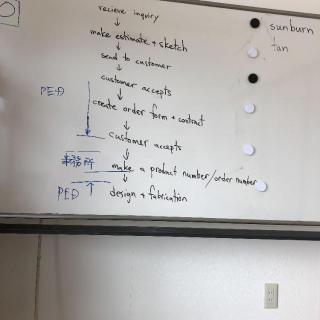 recieve inquiry
↓
make estimate + sketch
↓
send to customer
↓
customer accepts
↓
create order form + contract
↓
customer accepts
↓
make a product number/order number
↓
design + fabrication
PED
事務所
PED
sunburn
tan